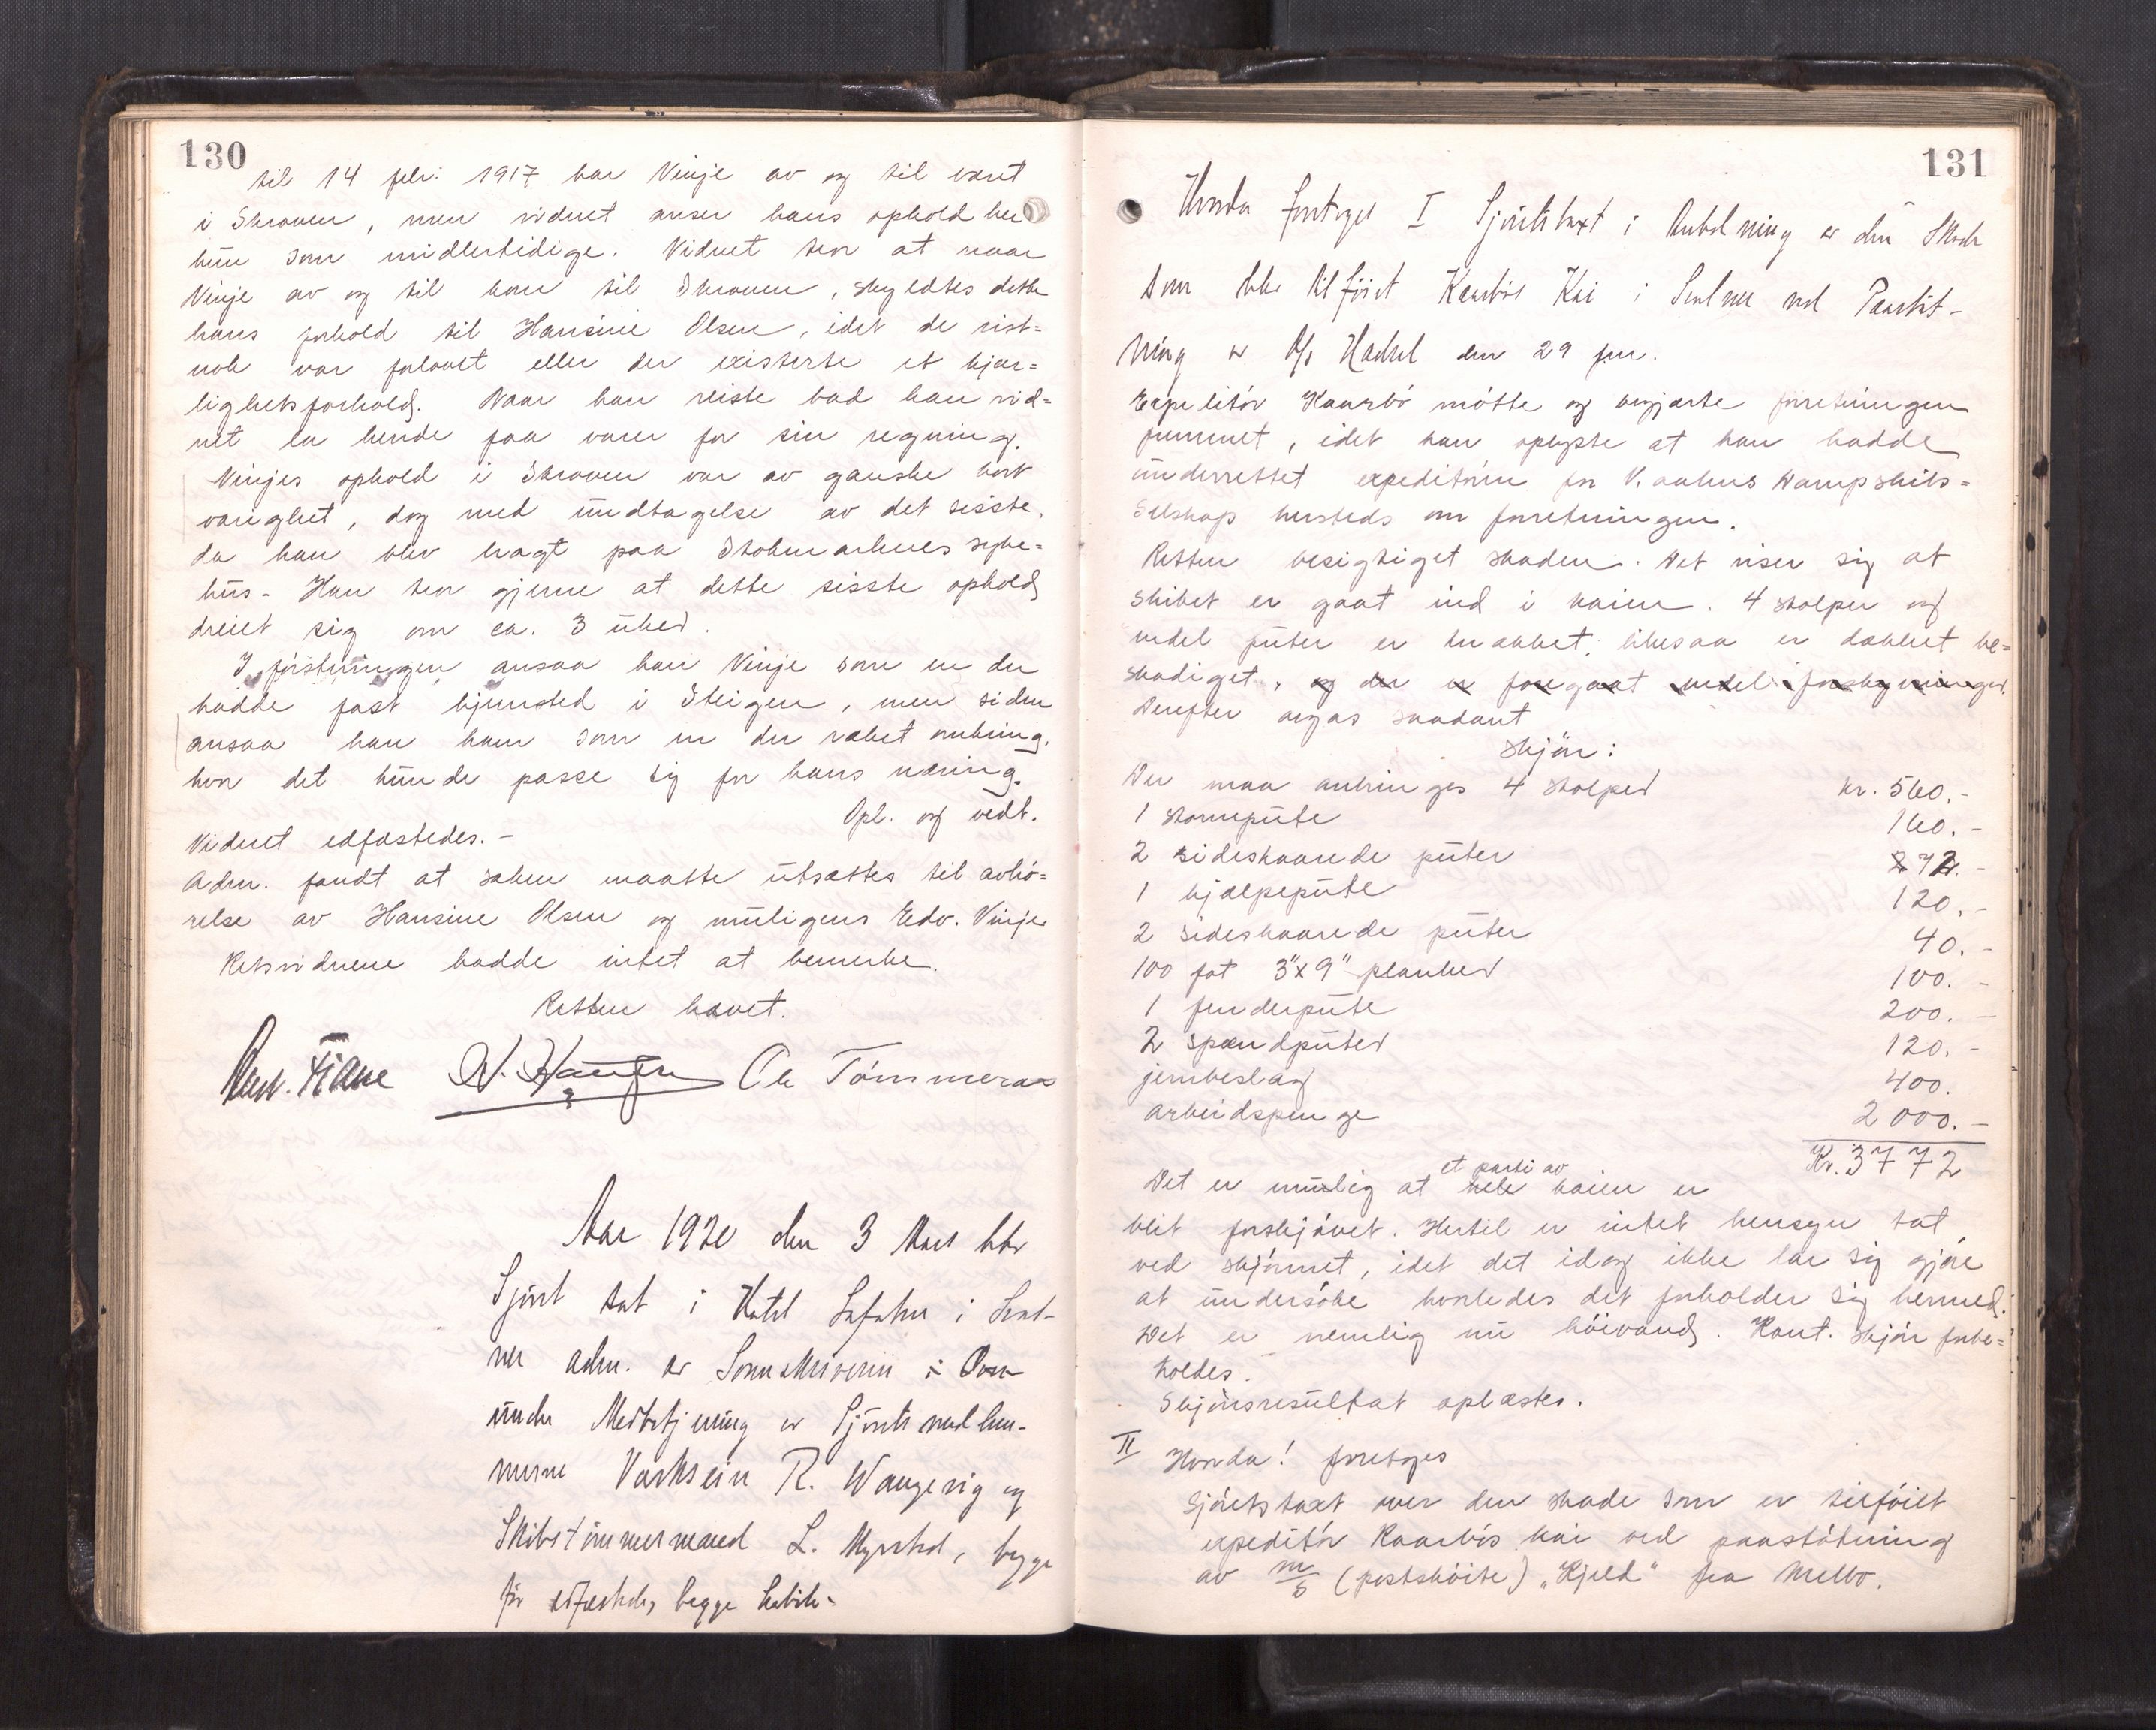 130
til 14 febr: 1917 har Vinje av og til været
i Skroven, men vidnet anser hans ophold her
kun som midlertidige. Vidnet tror at naar
Vinje av og til kom til Skroven, skyldtes dette
hans forhold til Hansine Olsen, idet de vist=
nok var forlovet eller der existerte et kjær=
lighetsforhold. Naar han reiste bad han vid=
net la hende faa varer for sin regning.
Vinjes ophold i Skroven var av ganske kort
varighet, dog med undtagelse av det sisste,
da han blev bragt paa Stokmarknes syke=
hus. Han tror gjerne at dette sisste ophold
dreiet sig om ca. 3 uker.
I førstningen ansaa han Vinje som en der
hadde fast hjemsted i Steigen, men siden
ansaa han ham som en der reiset omkring,
hvor det kunde passe sig for hans næring.
Opl. og vedt.
Vidnet edfæstedes. -
Adm. fandt at saken maatte utsættes til avhø=
relse av Hansine Olsen og muligens Edv. Vinje
Retsvidnene hadde intet at bemerke.
Retten hævet.
N. Hansen Ole Tømmeraas
Aar 1920 den 3 Mars blev
Sjøret sat i Hotel Lofoten i Svol-
vær adm. av Sorenskriveren i
under Medbetjening av Sjøretsmedlem-
merne Værkseier R. Wangsvig og
Skibstømmermand L. Myrstad, begge
før edfæstede, begge
131
Hvorda foretoges I Sjøretstaxt i Anledning av den Skade
som blev tilføiet Kaarbøs Kai i Svolvær ved Paastøt-
ning av D/S Hadsel den 29 jan.
Expeditør Kaarbø møtte og begjærte forretningen
fremmet, idet han oplyste at han hadde
underrettet expeditøren for V. aalens Dampskibs=
Selskap hersteds om forretningen.
Retten besigtiget skaden. Det viser sig at
skibet er gaat ind i kaien. 4 stolper og
endel puter er knækket, likesaa er dækket be=
skadiget, og der er foregaat endel forskyvninger.
Derefter avgas saadant
skjøn:
Der maa anbringes 4 stolper kr. 560.-
1 stormpute 160.-
2 sideskaarede puter 72.-
1 hjælpepute 120.-
2 sideskaarede puter 40.-
100 fot 3"x9" planker 100.-
1 fenderpute 200.-
2 spændputer 120.-
jernbeslag 400.
arbeidspenge 2000.-
Kr. 3772
et parti av
Det er mulig at hele kaien er
blit forskjøvet. Hertil er intet hensyn tat
ved skjønnet, idet det idag ikke lar sig gjøre
at undersøke hvorledes det forholder sig hermed.
Det er nemlig nu høivand. Kont. skjøn forbe=
holdes.
Skjønsresultat oplæstes.
II Hvorda! foretoges
Sjøretstaxt over den skade som er tilføiet
expeditør Kaarbøs kai ved paastøtning
av m/s (postskøite) „Kjeld" fra Melbo.